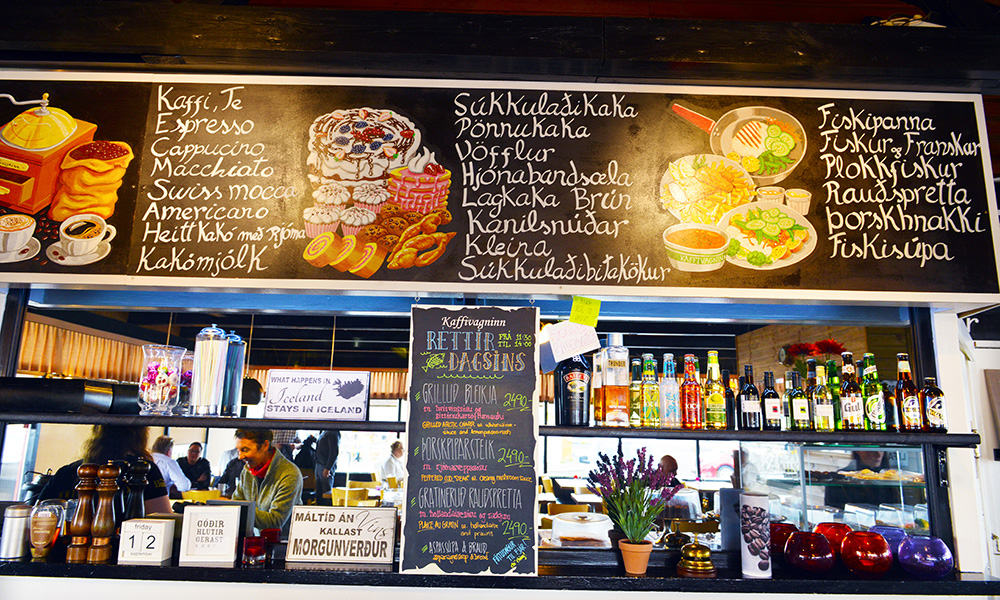 Kaffi, Te
Espresso
Cappucino
Macchiato
Swiss mocca
Americano
Heitt Kakó með Rjóma
Kakómjólk
Súkkulaðikaka
Pönnukaka
Vöfflur
Hjónabandsæla
Lagkaka Brún
Kanilsnúðar
Kleina
Súkkulaðibitakökur
KAFFIVAGNINN
Fiskipanna
Fiskur & Franskar
Plokkfiskur
Rauðspretta
Þorskhnakki
Fiskisúpa
Kaffivagninn
RÉTTIR FRÁ 11:30
TIL 14:00
DAGSINS
GRILLUÐ BLEIKJA
2490.-
GRILLED ARCTIC CHARR
ÞORSKPIPARSTEIK
2490.-
GRATINERUÐ RAUÐSPRETTA
PLACE AU GRATIN
and prawns
2490.-
ASPASSÚPA & BRAUÐ
asparagussoup & bread
WHAT HAPPENS IN
Iceland
STAYS IN ICELAND
THUNDER
Gull
friday
12
september
GÓÐIR
HLUTIR
GERAST
MÁLTÍÐ ÁN Víns
KALLAST
MORGUNVERÐUR